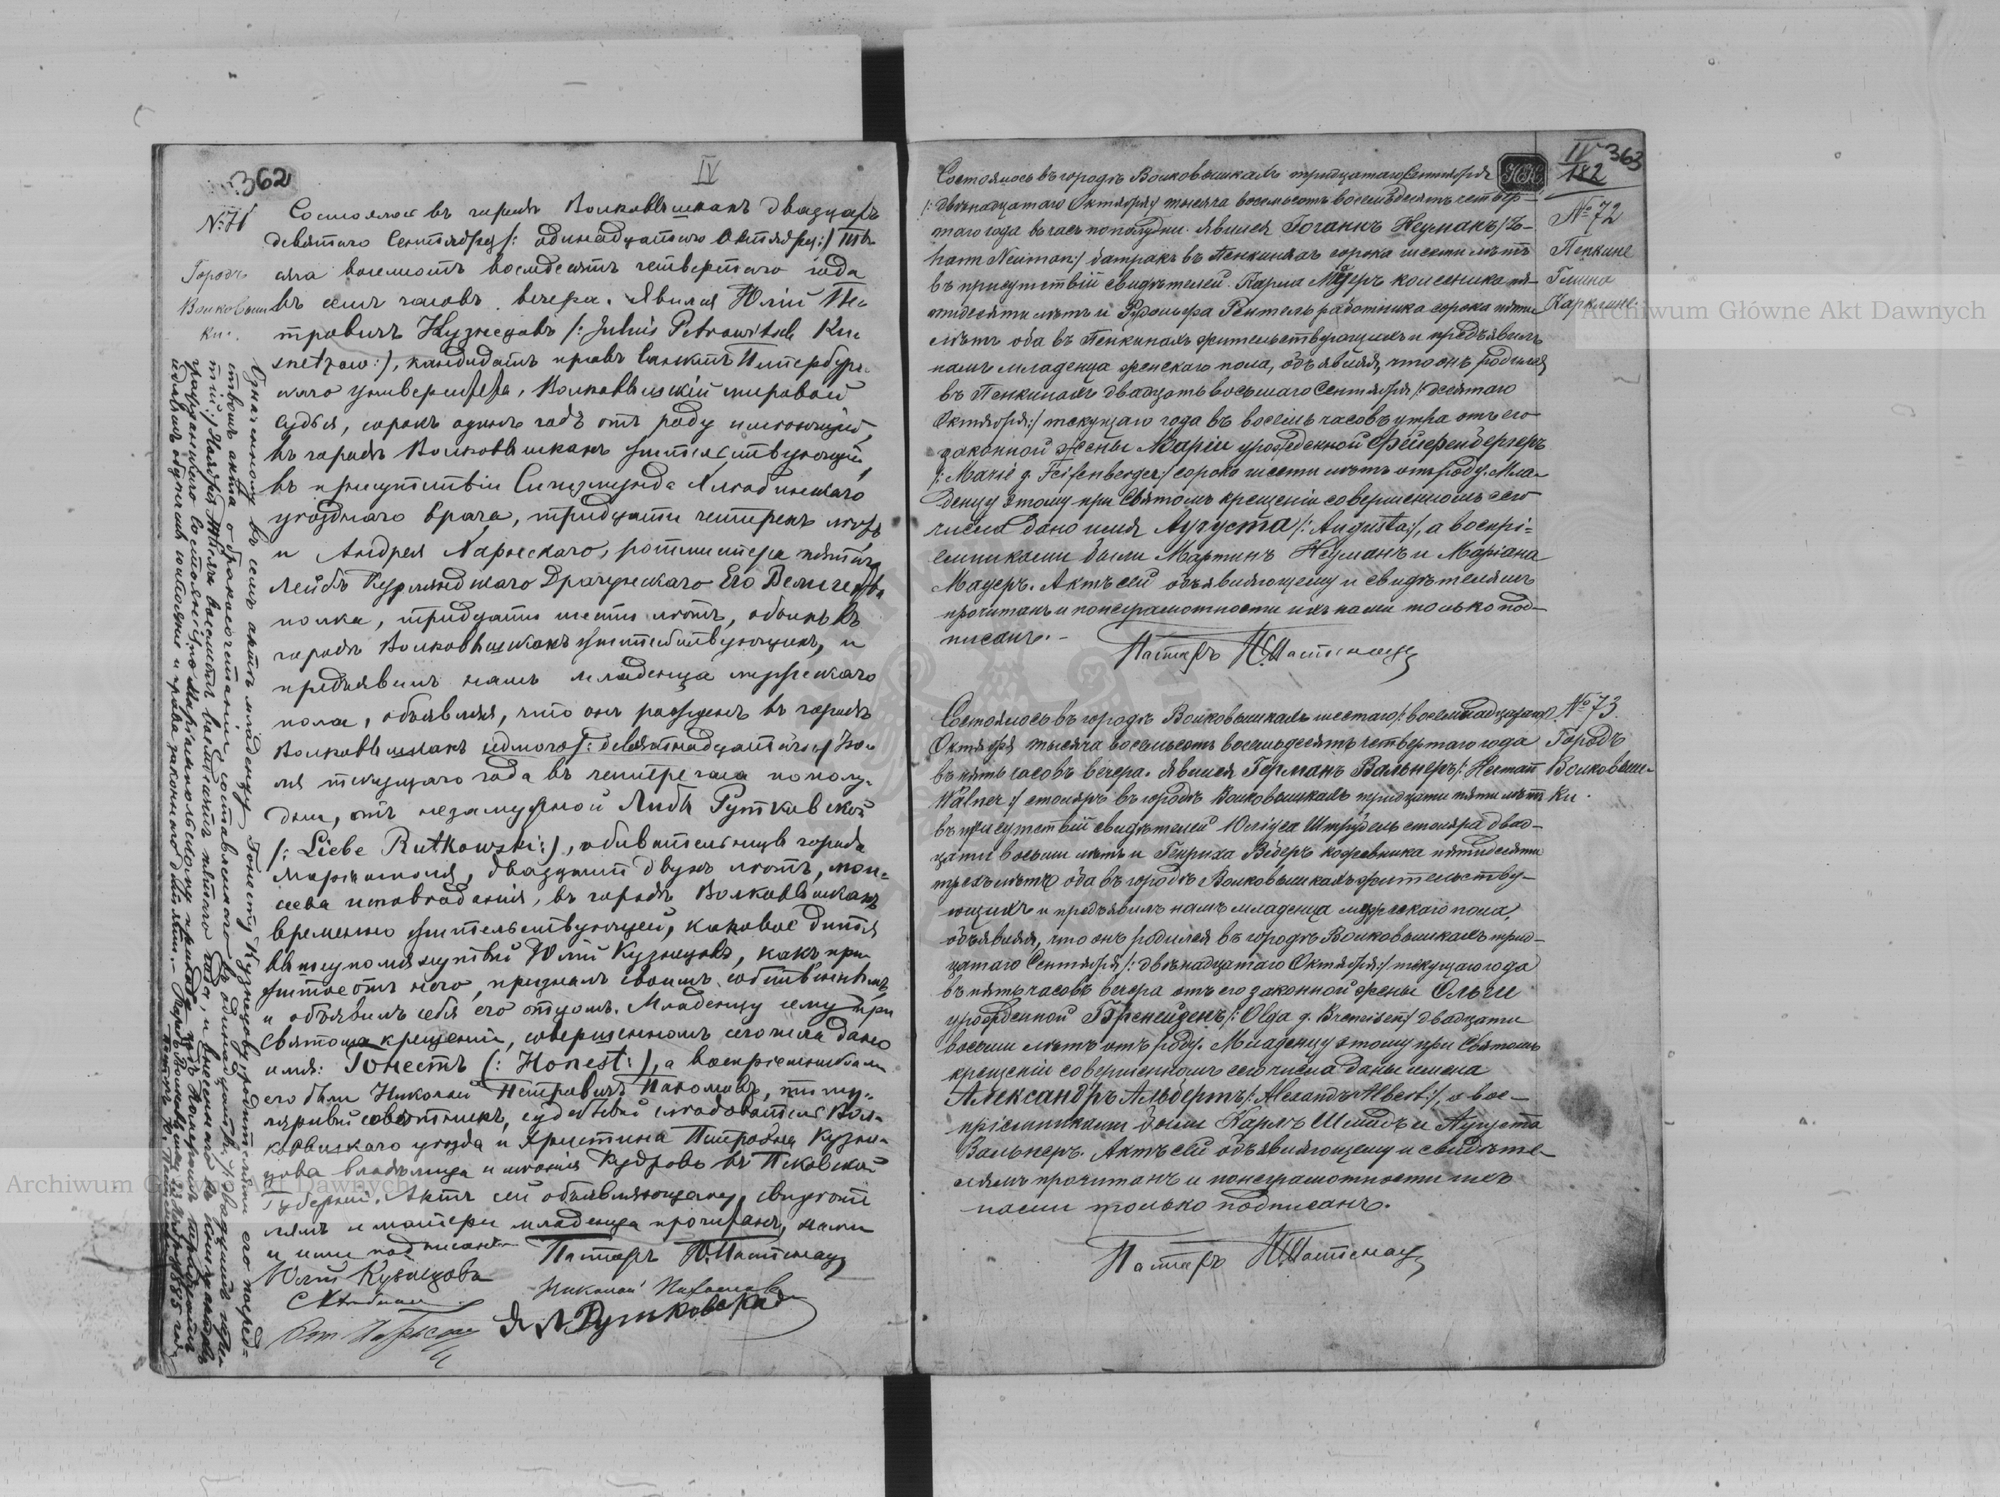 362
IV
№ 71
Городъ
Волковышки.
Состоялось въ городѣ Волковышкахъ двадцать
девятаго Сентября /: одинадцатаго Октября :/ ты-
сяча восемьсотъ восемдесятъ четвертаго года
въ семь часовъ вечера. Явился Юлій Пе-
тровичъ Кузнецовъ /: Julius Petrowitsch Kus-
netzow :/, кандидатъ правъ Санктъ Питербург-
скаго университета, Волковышскій мировой
судья, сорокъ одинъ годъ отъ роду имѣющій,
въ городѣ Волковышкахъ жительствующій,
въ присутствіи Сигизмунда
уѣзднаго врача, тридцати четырехъ лѣтъ
и Андрея ротмистра пятаго
Лейбъ Курляндскаго Драгунскаго Его Величества
полка, тридцати шести лѣтъ, обоихъ въ
городѣ Волковышкахъ жительствующихъ, и
предъявилъ намъ младенца мужескаго
пола, объявляя, что онъ рожденъ въ городѣ
Волковышкахъ седмого /: девятнадцатаго :/ Iю-
ля текущаго года въ четыре часа пополу-
дни, отъ незамужной Либы Рутковской
/: Liebe Rutkowski :/, обывательницы города
Маріамполя, двадцати двухъ лѣтъ, мои-
сеева исповѣданія, въ городѣ Волковышкахъ
временно жительствующей, каковое дитя
вышеупомянутый Юлій Кузнецовъ, какъ при-
житое отъ него, призналъ своимъ собственнымъ,
и объявилъ себя его отцомъ. Младенцу сему при
Святомъ крещеніи, совершенномъ сего числа дано
имя: Гонестъ (: Honest :), а воспріемниками
его были Николай Петровичъ Пахомовъ, титу-
лярный совѣтникъ, судебный слѣдователь Вол-
ковышскаго уѣзда и Христина Петровна Кузне-
цова владѣлица имѣнія Кудрово въ Псковской
Губерніи. Актъ сей объявляющему, свидѣте-
лямъ и матери младенца прочитанъ, нами
и ими подписанъ.
Пасторъ
Юлій Кузнецовъ
Николай Пахомовъ
Л Рутковская
Означенному въ семъ актѣ младенцу Гонесту Кузнецову, родителями его посред-
ствомъ акта о бракосочетаніи, составленнаго
IV 363
182
№ 72
Пенкине
Гмина
Состоялось въ городѣ Волковышкахъ тридцатаго Сентября
/: двѣнадцатаго Октября :/ тысяча восемьсотъ восемьдесятъ четвер-
таго года въ часъ пополудни. Явился Гоганъ Нейманъ /: Jo-
hann Neuman :/ батракъ въ Пенкинахъ сорока шести лѣтъ
въ присутствіи свидѣтелей Карла Мадеръ колесника пя-
тидесяти лѣтъ и Рудольфа Рентель работника сорока пяти
лѣтъ оба въ Пенкинахъ жительствующихъ и предъявилъ
намъ младенца женскаго пола, объявляя, что онъ родился
въ Пенкинахъ двадцать восьмаго Сентября /: десятаго
Октября :/ текущаго года въ восемь часовъ утра отъ его
законной жены Маріи урожденной Фейфенбергеръ
/: Marie g. Feifenberger :/ сорока шести лѣтъ отъ роду. Мла-
денцу этому при Святомъ крещеніи совершенномъ сего
числа дано имя Аугуста /: Augusta :/, а воспрі-
емниками были Мартинъ Нейманъ и Маріана
Мадеръ. Актъ сей объявляющему и свидѣтелямъ
прочитанъ и понеграмотности ихъ нами только под-
писанъ. –
Пасторъ
№ 73
Городъ
Волковыш-
ки.
Состоялось въ городѣ Волковышкахъ шестаго /: восемнадцатаго :/
Октября тысяча восемьсотъ восемьдесятъ четвертаго года
въ пять часовъ вечера. Явился Германъ Вальнеръ /: Herman
Walner :/ столяръ въ городѣ Волковышкахъ тридцати пяти лѣтъ
въ присутствіи свидѣтелей Юліуса Штрудель столяра двад-
цати восьми лѣтъ и Генриха Ведеръ кожевника пятидесяти
трехъ лѣтъ оба въ городѣ Волковышкахъ жительству-
ющихъ и предъявилъ намъ младенца мужескаго пола,
объявляя, что онъ родился въ городѣ Волковышкахъ трид-
цатаго Сентября /: двѣнадцатаго Октября :/ текущаго года
въ пять часовъ вечера отъ его законной жены Ольги
урожденной Бренейзенъ /: Olga g. Breneisen :/ двадцати
восьми лѣтъ отъ роду. Младенцу этому при Святомъ
крещеніи совершенномъ сего числа даны имена
Александръ Альбертъ /: Alexander Albert :/, а вос-
пріемниками были Карлъ Шмидъ и Аугуста
Вальнеръ. Актъ сей объявляющему и свидѣте-
лямъ прочитанъ и понеграмотности ихъ
нами только подписанъ.
Пасторъ
Archiwum Główne Akt Dawnych
Archiwum Główne Akt Dawnych